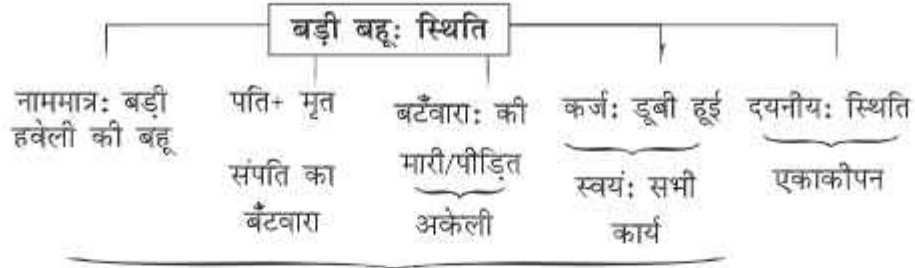 बड़ी बहू: स्थिति
नाममात्र: बड़ी
हवेली की बहू
पति+ मृत
संपति का
बँटवारा
बटँवारा: की
मारी/पीड़ित
अकेली
कर्ज: डूबी हूई
स्वयं: सभी
कार्य
दयनीय: स्थिति
एकाकीपन